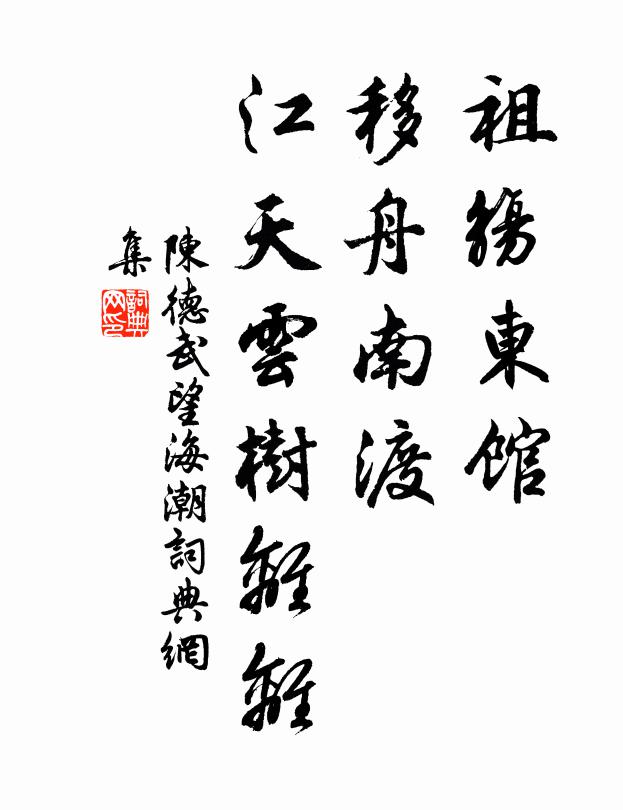 祖觴東館
移舟南渡
江天雲樹離離
陳德武望海潮詞典網
集
詞典网印